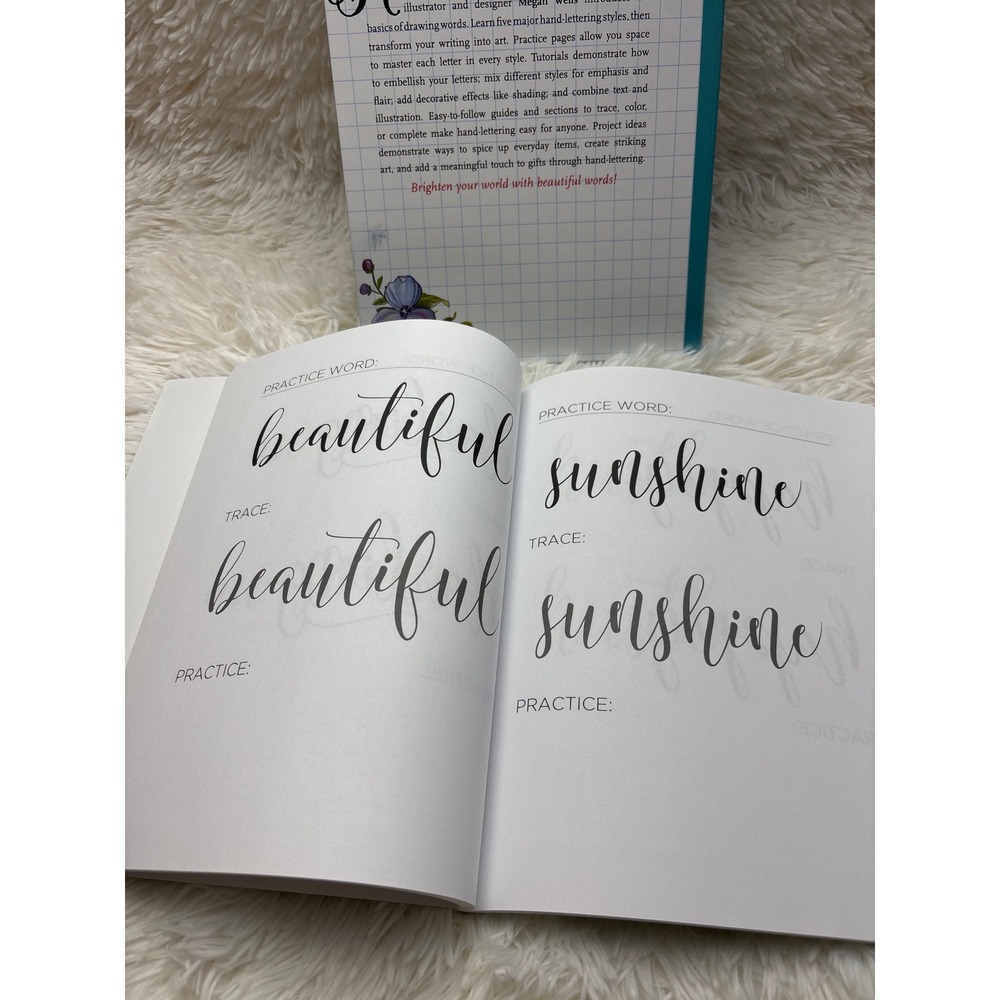 illustrator and designer Megan Wells introduces
basics of drawing words. Learn five major hand-lettering styles, then
transform your writing into art. Practice pages allow you space
to master each letter in every style. Tutorials demonstrate how
to embellish your letters; mix different styles for emphasis and
flair; add decorative effects like shading; and combine text and
illustration. Easy-to-follow guides and sections to trace, color,
or complete make hand-lettering easy for anyone. Project ideas
demonstrate ways to spice up everyday items, create striking
art, and add a meaningful touch to gifts through hand-lettering.
Brighten your world with beautiful words!
PRACTICE WORD:
beautiful
TRACE:
beautiful
PRACTICE:
PRACTICE WORD:
sunshine
TRACE:
sunshine
PRACTICE: